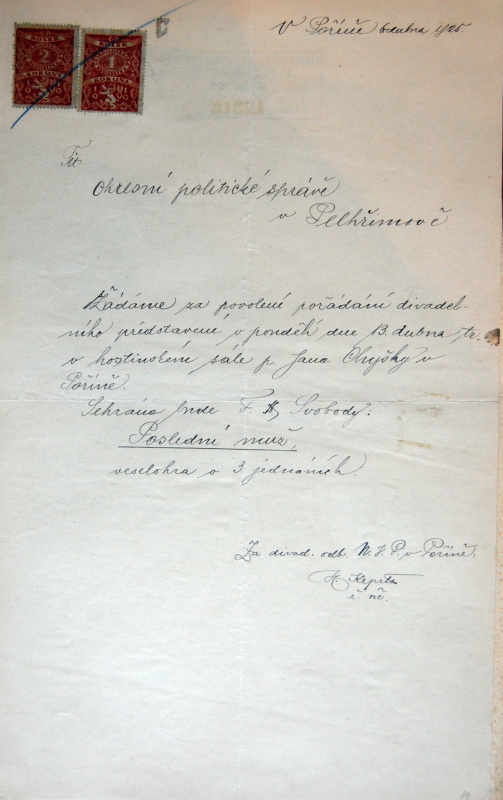 V Poříčí 6 dubna 1925.
KOLEK
2
KORUNA
KOLEK
1
KORUNA
Tit.
Okresní politické správě
v Pelhřimově
Žádáme za povolené pořádání divadel-
ního představené v pondělí dne 13. dubna t.r.
v hostinském sále p. Jana v
Poříčě.
Sehrána bude F. X. Svobody:
Poslední muž,
veselohra o 3 jednáních.
Za divad. odb. N. J. P. v Poříčě.